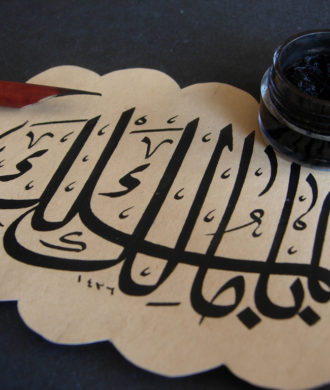 يا مالك الملك
١٤٢٦